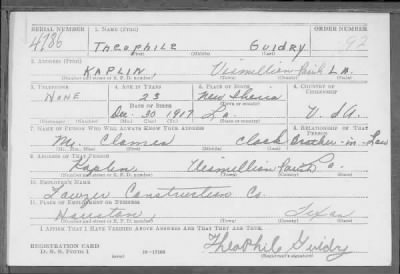 SERIAL NUMBER 1. NAME (Print) ORDER NUMBER
4786 THEOPHILE GUIDRY 92
(First) (Middle) (Last)
2. ADDRESS (Print)
KAPLIN, Vermillion Parish LA.
(Number and street or R. F. D. number) (Town) (County) (State)
3. TELEPHONE 4. AGE IN YEARS 5. PLACE OF BIRTH 6. COUNTRY OF CITIZENSHIP
NONE 23 New Iberia
DATE OF BIRTH (Town or county)
Dec. 30 1917 La. U.SA.
(Exchange) (No.) (Mo.) (Day) (Yr.) (State or country)
7. NAME OF PERSON WHO WILL ALWAYS KNOW YOUR ADDRESS 8. RELATIONSHIP OF THAT PERSON
Mr. Brother-in-Law
(Mr., Mrs., Miss) (First) (Middle) (Last)
9. ADDRESS OF THAT PERSON
Kaplin Vermillion Parish La.
(Number and street or R. F. D. number) (Town) (County) (State)
10. EMPLOYER'S NAME
Construction Co.
11. PLACE OF EMPLOYMENT OR BUSINESS
Houston, Texas
(Number and street or R. F. D. number) (Town) (County) (State)
I AFFIRM THAT I HAVE VERIFIED ABOVE ANSWERS AND THAT THEY ARE TRUE.
REGISTRATION CARD
D. S. S. Form 1 (over) Theophile Guidry